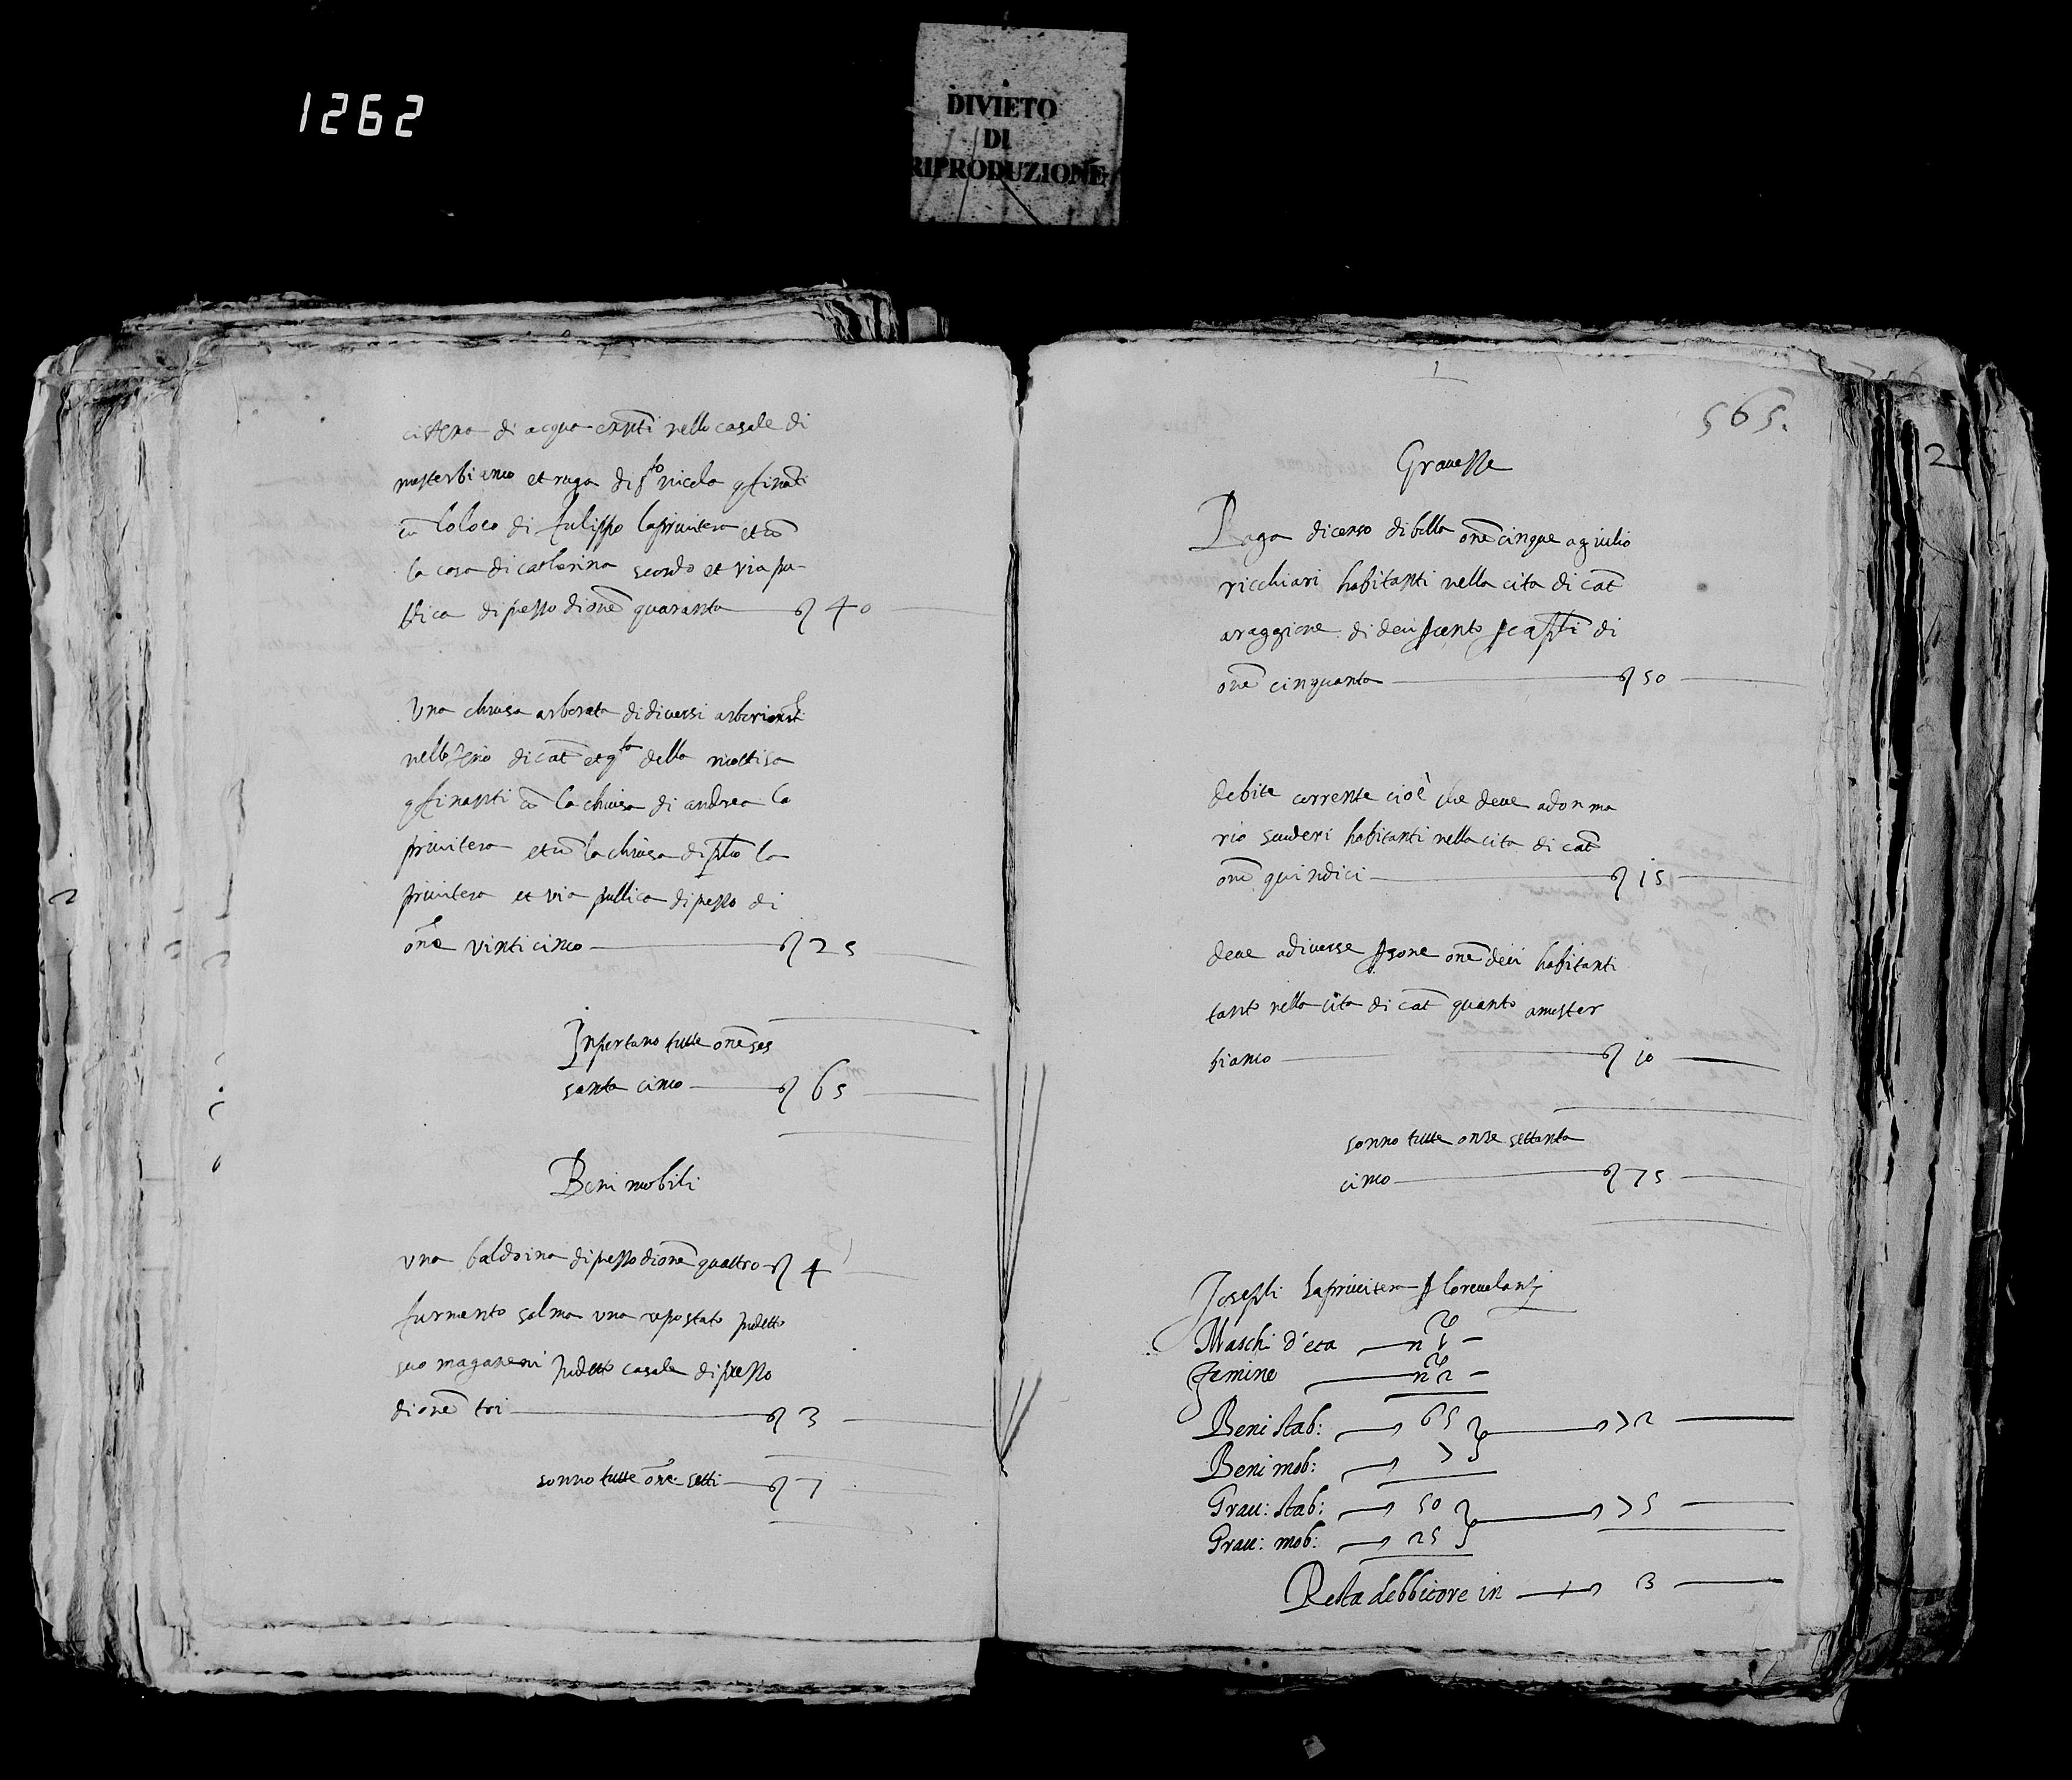 1262
DIVIETO
DI
RIPRODUZIONE
cisterna di acqua nello casale di
mosterbianco et ruga di sto nicola
cū loloco di fulippo laprivitera et cō
la casa di catherina scordo et via pu-
blica di prezzo di onze quaranta 40
Una chiusa arborata di diversi arbori
nello di cat et della
cō la chiusa di andrea la
privitera et cū la chiusa di la
privitera et via publica di prezzo di
onze vinticinco 25
Inportano tutte onze ses
santa cinco 65
Beni mobili
una baldoina di prezzo di onze quattro 4
furmento salma una repostato
suo magaseni casale di prezzo
di onze tri 3
sonno tutte onze setti 7
565.
2
Gravezze
Paga di censo di bolla onze cinque a giulio
ricchiari habitanti nella cita di cat
a raggione di deci per cento di
onze cinquanta 50
debite corrente cioè che deve a don ma
rio scuderi habitanti nella cita di cat
onze quindici 15
deve a diverse persone onze deci habitanti
tanto nella cita di cat quanto a moster
bianco 10
sonno tutte onze settanta
cinco 75
Joseph Laprivitera
Maschi d'eta n 1
Femine n 2
Beni stab: 65 72
Beni mob: 7
Grav: stab: 50 75
Grav: mob: 25
Resta debbitore in 3